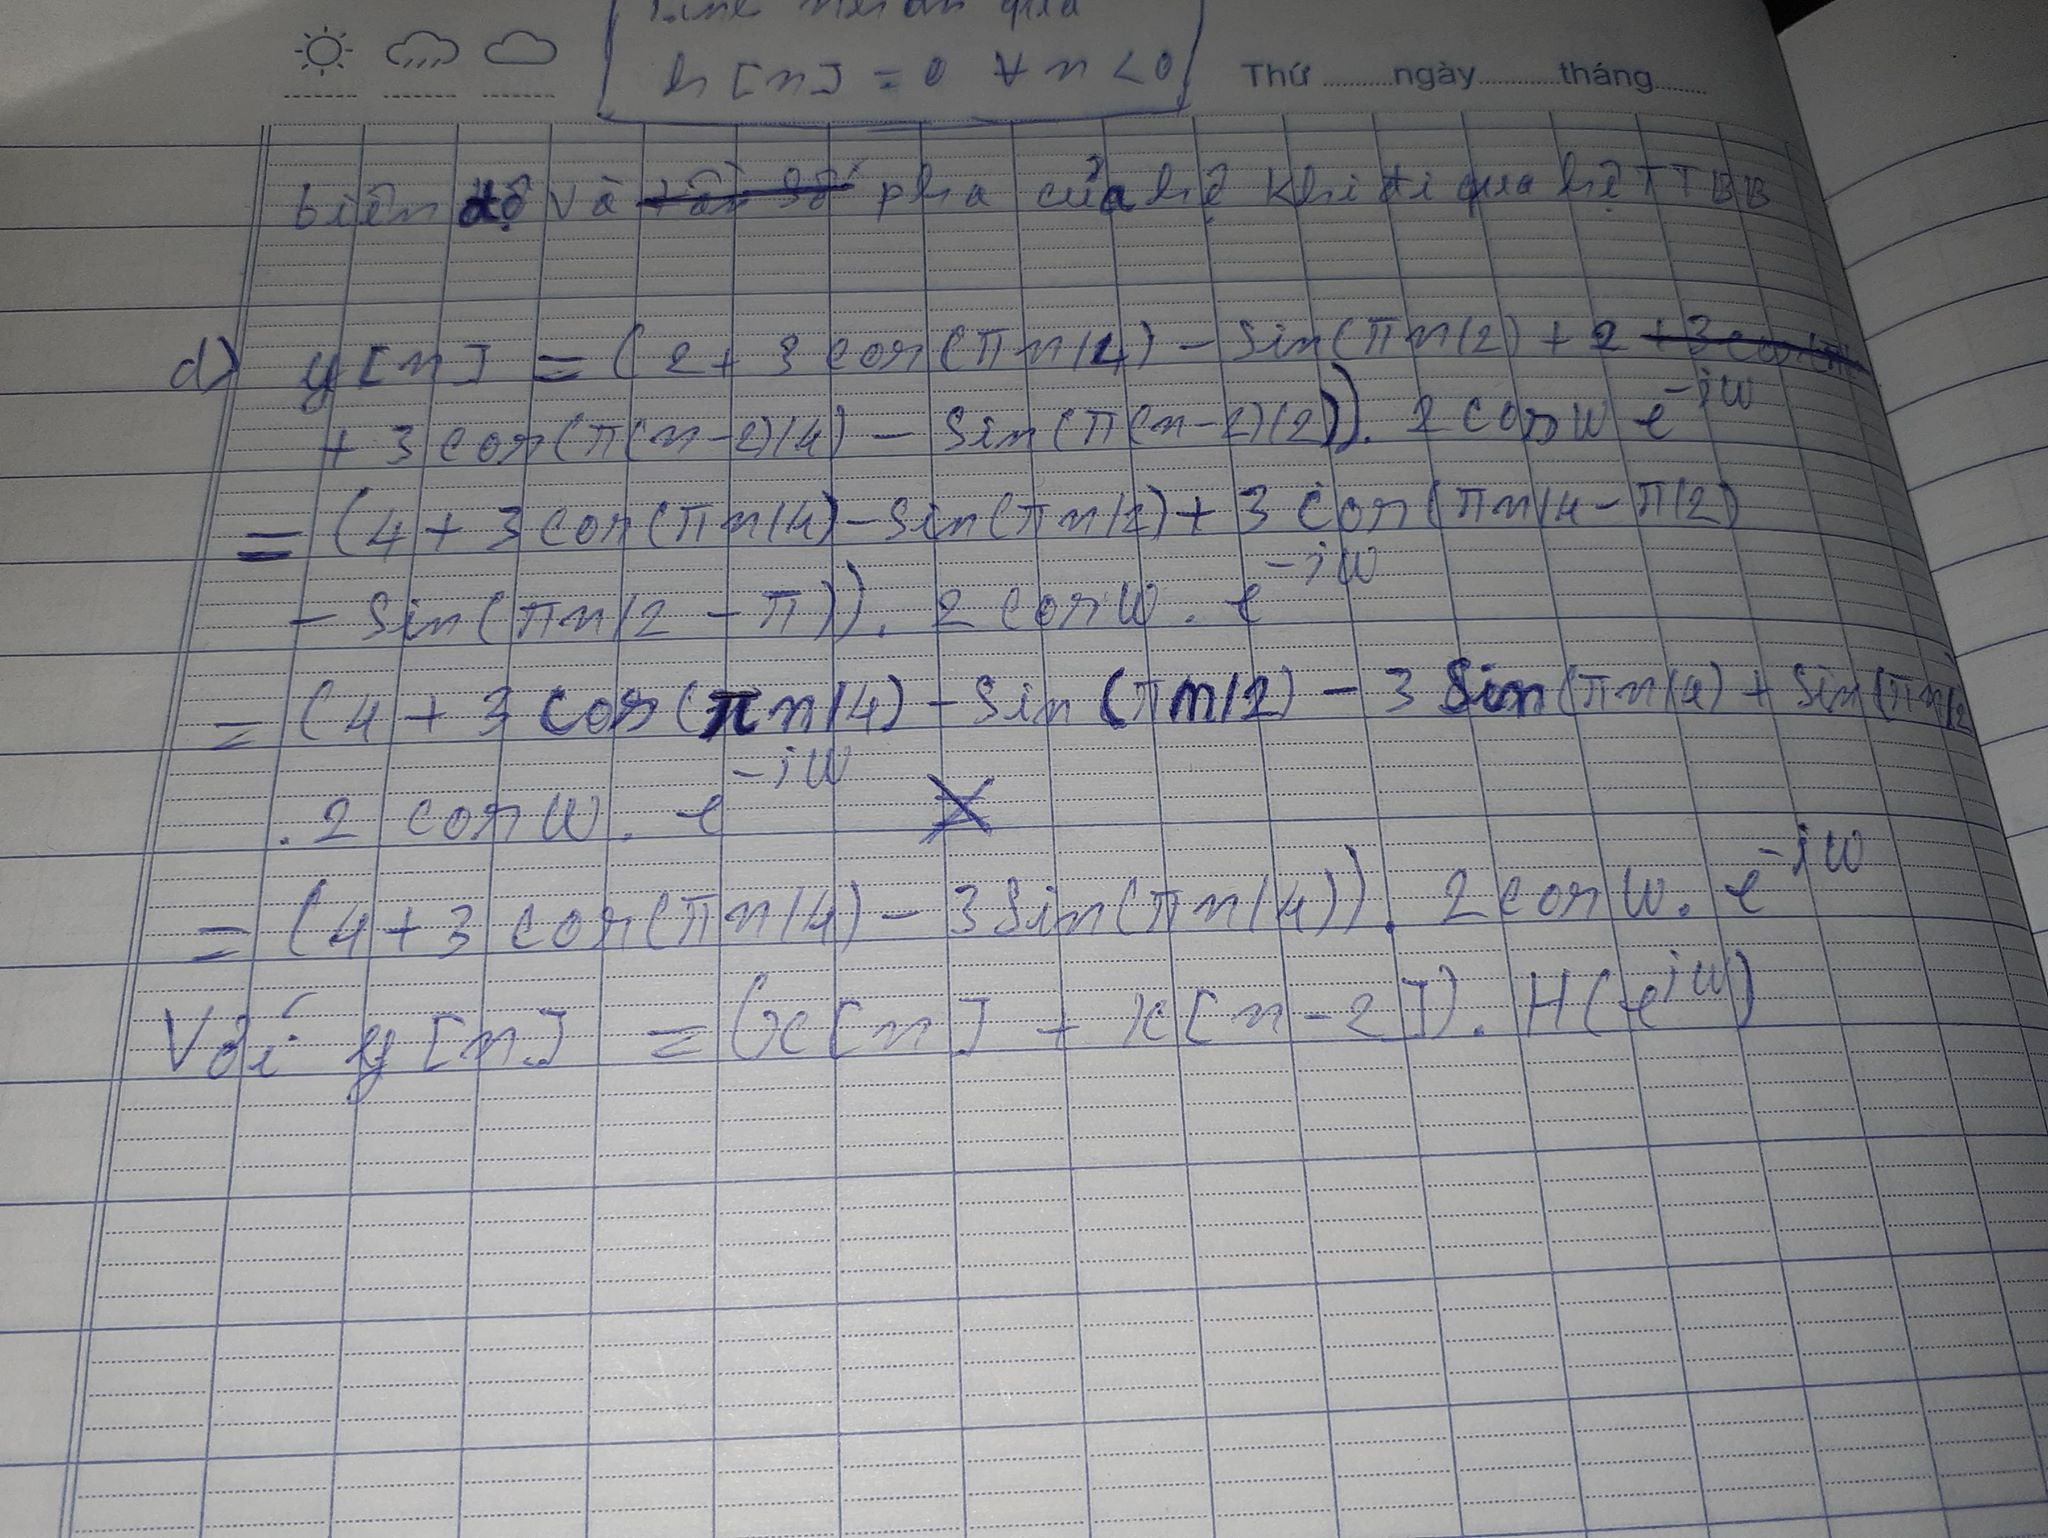 tính nhân quả
h[n] = 0 ∀ n < 0
Thứ ......... ngày ......... tháng .........
biên độ và pha của hệ khi đi qua hệ TTBB
d) y[n] = (2 + 3 cos(πn/4) - sin(πn/2) + 2
+ 3 cos(π(n-2)/4) - sin(π(n-2)/2)). 2 cos w e^-iw
= (4 + 3 cos(πn/4) - sin(πn/2) + 3 cos(πn/4 - π/2)
- sin(πn/2 - π)). 2 cos w. e^-iw
= (4 + 3 cos(πn/4) - sin(πn/2) - 3 sin(πn/4) + sin(πn/2
. 2 cos w. e^-iw
= (4 + 3 cos(πn/4) - 3 sin(πn/4)). 2 cos w. e^-iw
Với y[n] = (x[n] + x[n-2]). H(e^iw)